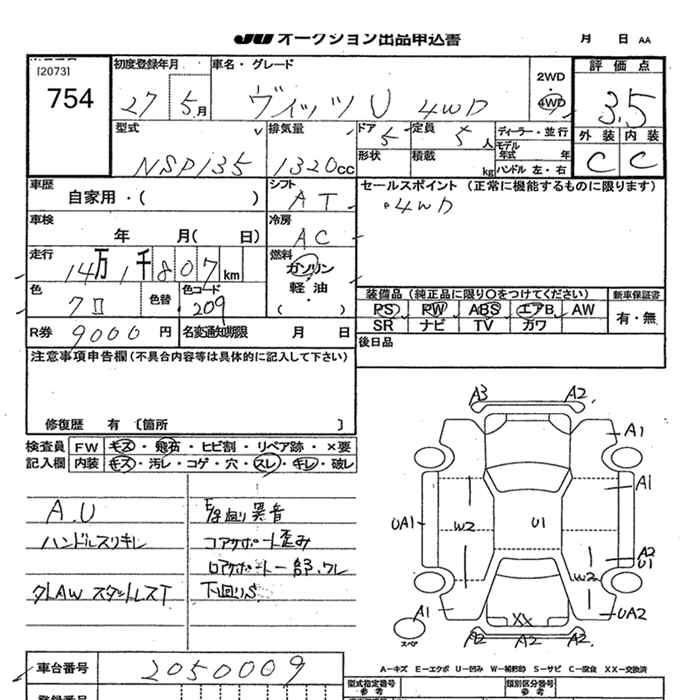 JU オークション出品申込書 月 日 AA
[2073]
754
初度登録年月
27 5月
車名・グレード
ヴィッツ U 4WD
2WD
4WD
評価点
3.5
外装 内装
C C
型式
NSP135
排気量
1320cc
ドア
5
定員
5人
ディーラー・並行
モデル年式 年
ハンドル 左・右
形状
積載 kg
車歴
自家用・( )
シフト
AT
セールスポイント (正常に機能するものに限ります)
・4WD
車検
年 月( 日)
冷房
AC
走行
14万1千807km
燃料
ガソリン
軽・油
( )
色
クロ
色替
色コード
209
装備品 (純正品に限り○をつけてください)
PS PW ABS エアB AW
SR ナビ TV カワ
新車保証書
有・無
R券 9000円
名変通知期限 月 日
後日品
注意事項申告欄 (不具合内容等は具体的に記入して下さい)
修復歴 有 〔箇所 〕
検査員記入欄
FW キズ・飛石・ヒビ割・リペア跡・×要
内装 キズ・汚レ・コゲ・穴・スレ・キレ・破レ
A.U
ハンドルスリキレ
タLAW スタットレスT
異音
コアサポート歪み
ロアサポート一部ワレ
下回りS
A3 A2
A1
A1
UA1 W2 U1
A2
U1
W2
A1 XX UA2
スペア
A2 A2 A2
A−キズ E−エクボ U−凹み W−補修跡 S−サビ C−腐食 XX−交換済
車台番号
2050009
型式指定番号
参考
類別区分番号
参考
登録番号